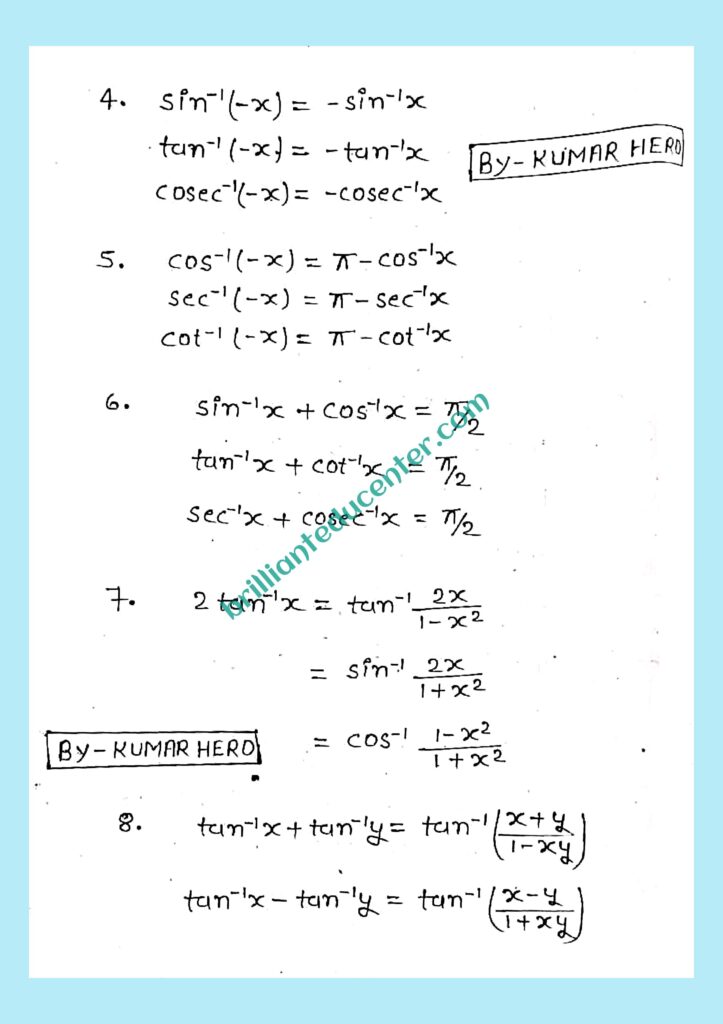 4. sin⁻¹(-x) = -sin⁻¹x
tan⁻¹(-x) = -tan⁻¹x
By- KUMAR HERO
cosec⁻¹(-x) = -cosec⁻¹x
5. cos⁻¹(-x) = π - cos⁻¹x
sec⁻¹(-x) = π - sec⁻¹x
cot⁻¹(-x) = π - cot⁻¹x
6. sin⁻¹x + cos⁻¹x = π/2
tan⁻¹x + cot⁻¹x = π/2
sec⁻¹x + cosec⁻¹x = π/2
brillianteducenter.com
7. 2 tan⁻¹x = tan⁻¹ 2x/1-x²
= sin⁻¹ 2x/1+x²
= cos⁻¹ 1-x²/1+x²
By- KUMAR HERO
8. tan⁻¹x + tan⁻¹y = tan⁻¹(x+y/1-xy)
tan⁻¹x - tan⁻¹y = tan⁻¹(x-y/1+xy)